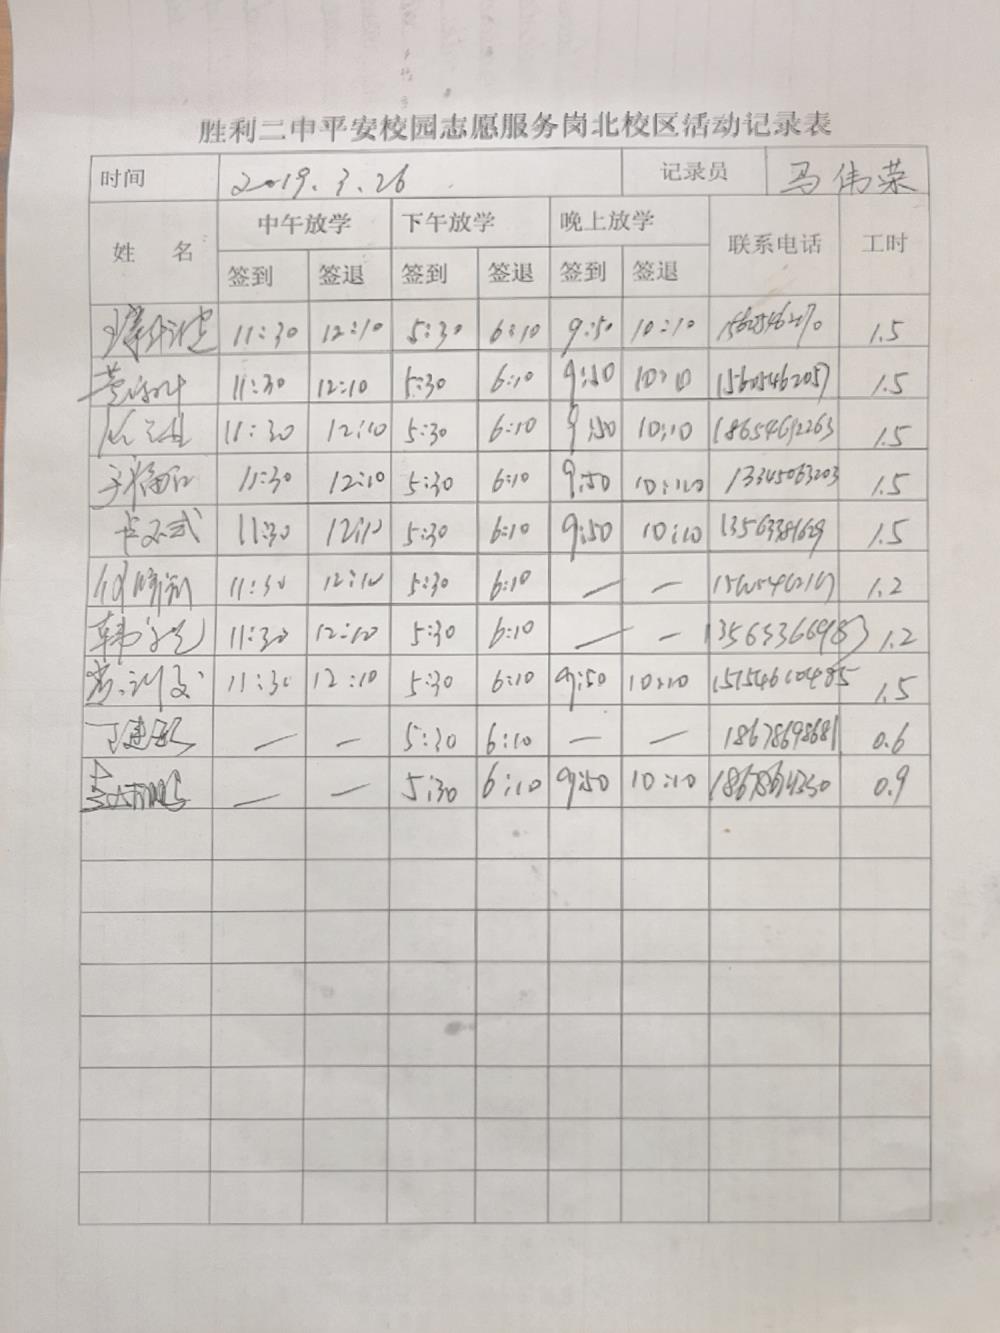 胜利二中平安校园志愿服务岗北校区活动记录表
时间 2019.3.26 记录员 马伟荣
姓名 中午放学 下午放学 晚上放学 联系电话 工时
签到 签退 签到 签退 签到 签退
11:30 12:10 5:30 6:10 9:50 10:10 1.5
11:30 12:10 5:30 6:10 9:50 10:10 15605462057 1.5
11:30 12:10 5:30 6:10 9:50 10:10 18654692263 1.5
11:30 12:10 5:30 6:10 9:50 10:10 13345063203 1.5
11:30 12:10 5:30 6:10 9:50 10:10 13563381629 1.5
11:30 12:10 5:30 6:10 — — 1.2
11:30 12:10 5:30 6:10 — — 13563366983 1.2
11:30 12:10 5:30 6:10 9:50 10:10 15154610485 1.5
— — 5:30 6:10 — — 18678698681 0.6
— — 5:30 6:10 9:50 10:10 0.9